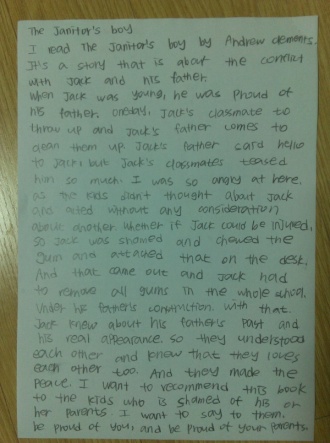 The Janitor's boy
I read The Janitor's boy by Andrew clements.
It's a story that is about the conflict
with Jack and his father.
When Jack was young, he was proud of
his father. oneday, Jack's classmate to
throw up and Jack's father comes to
clean them up Jack's father card hello
to Jack, but Jack's classmates teased
him so much. I was so angry at here.
as the kids didn't thought about Jack
and acted without any consideration
about another. whether if Jack could be injured,
so Jack was shamed and chewed the
gum and attached that on the desk.
And that came out and Jack had
to remove all gums in the whole school.
Under his father's construction. with that
Jack knew about his father's past and
his real appearance. so they understood
each other and know that they loves
each other too. And they made the
peace. I want to recommend this book
to the kids who is shamed of his or
her parents. I want to say to them.
be proud of you, and be proud of your parents.